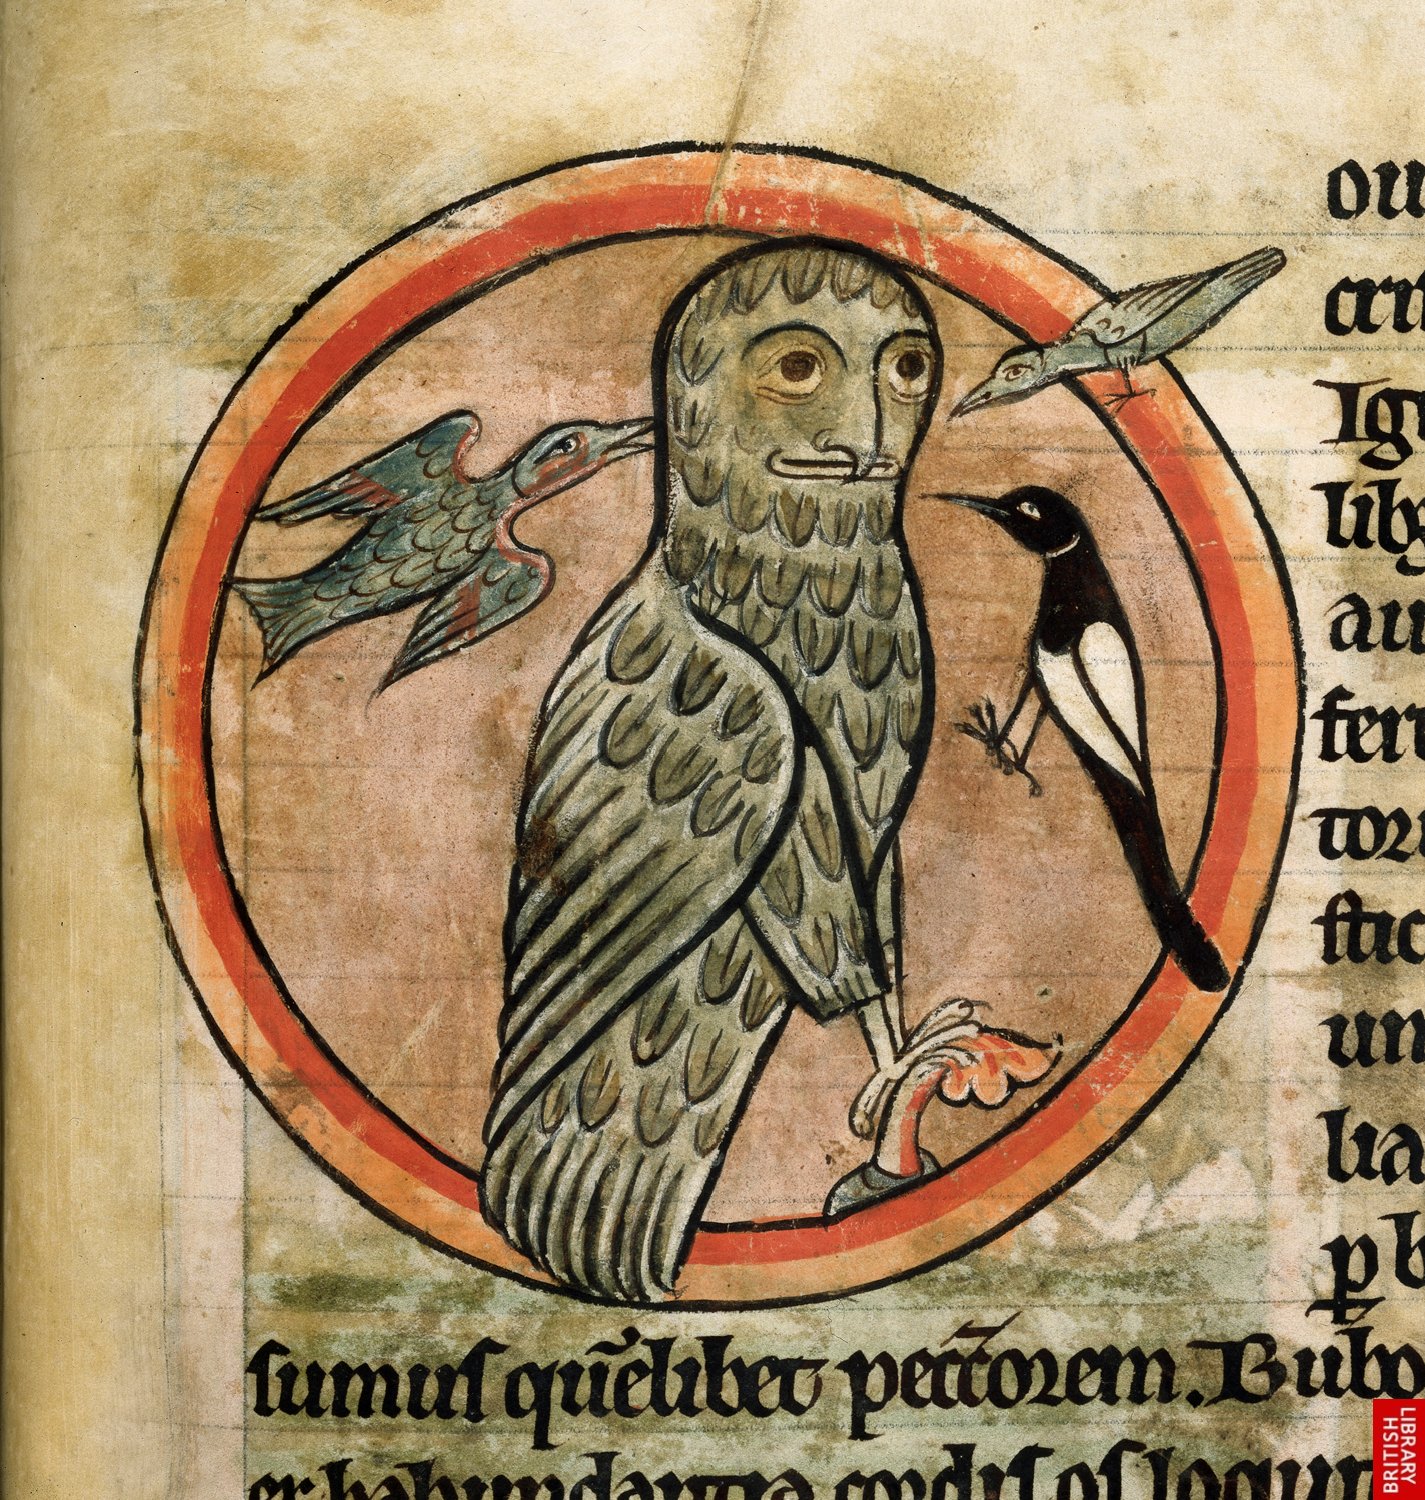 ou
Ig
lib
au
fer
tor
stic
un
lia
p b
sumus quēlibet peccorem. Bubo
er habundantia cordis os loquit
BRITISH
LIBRARY